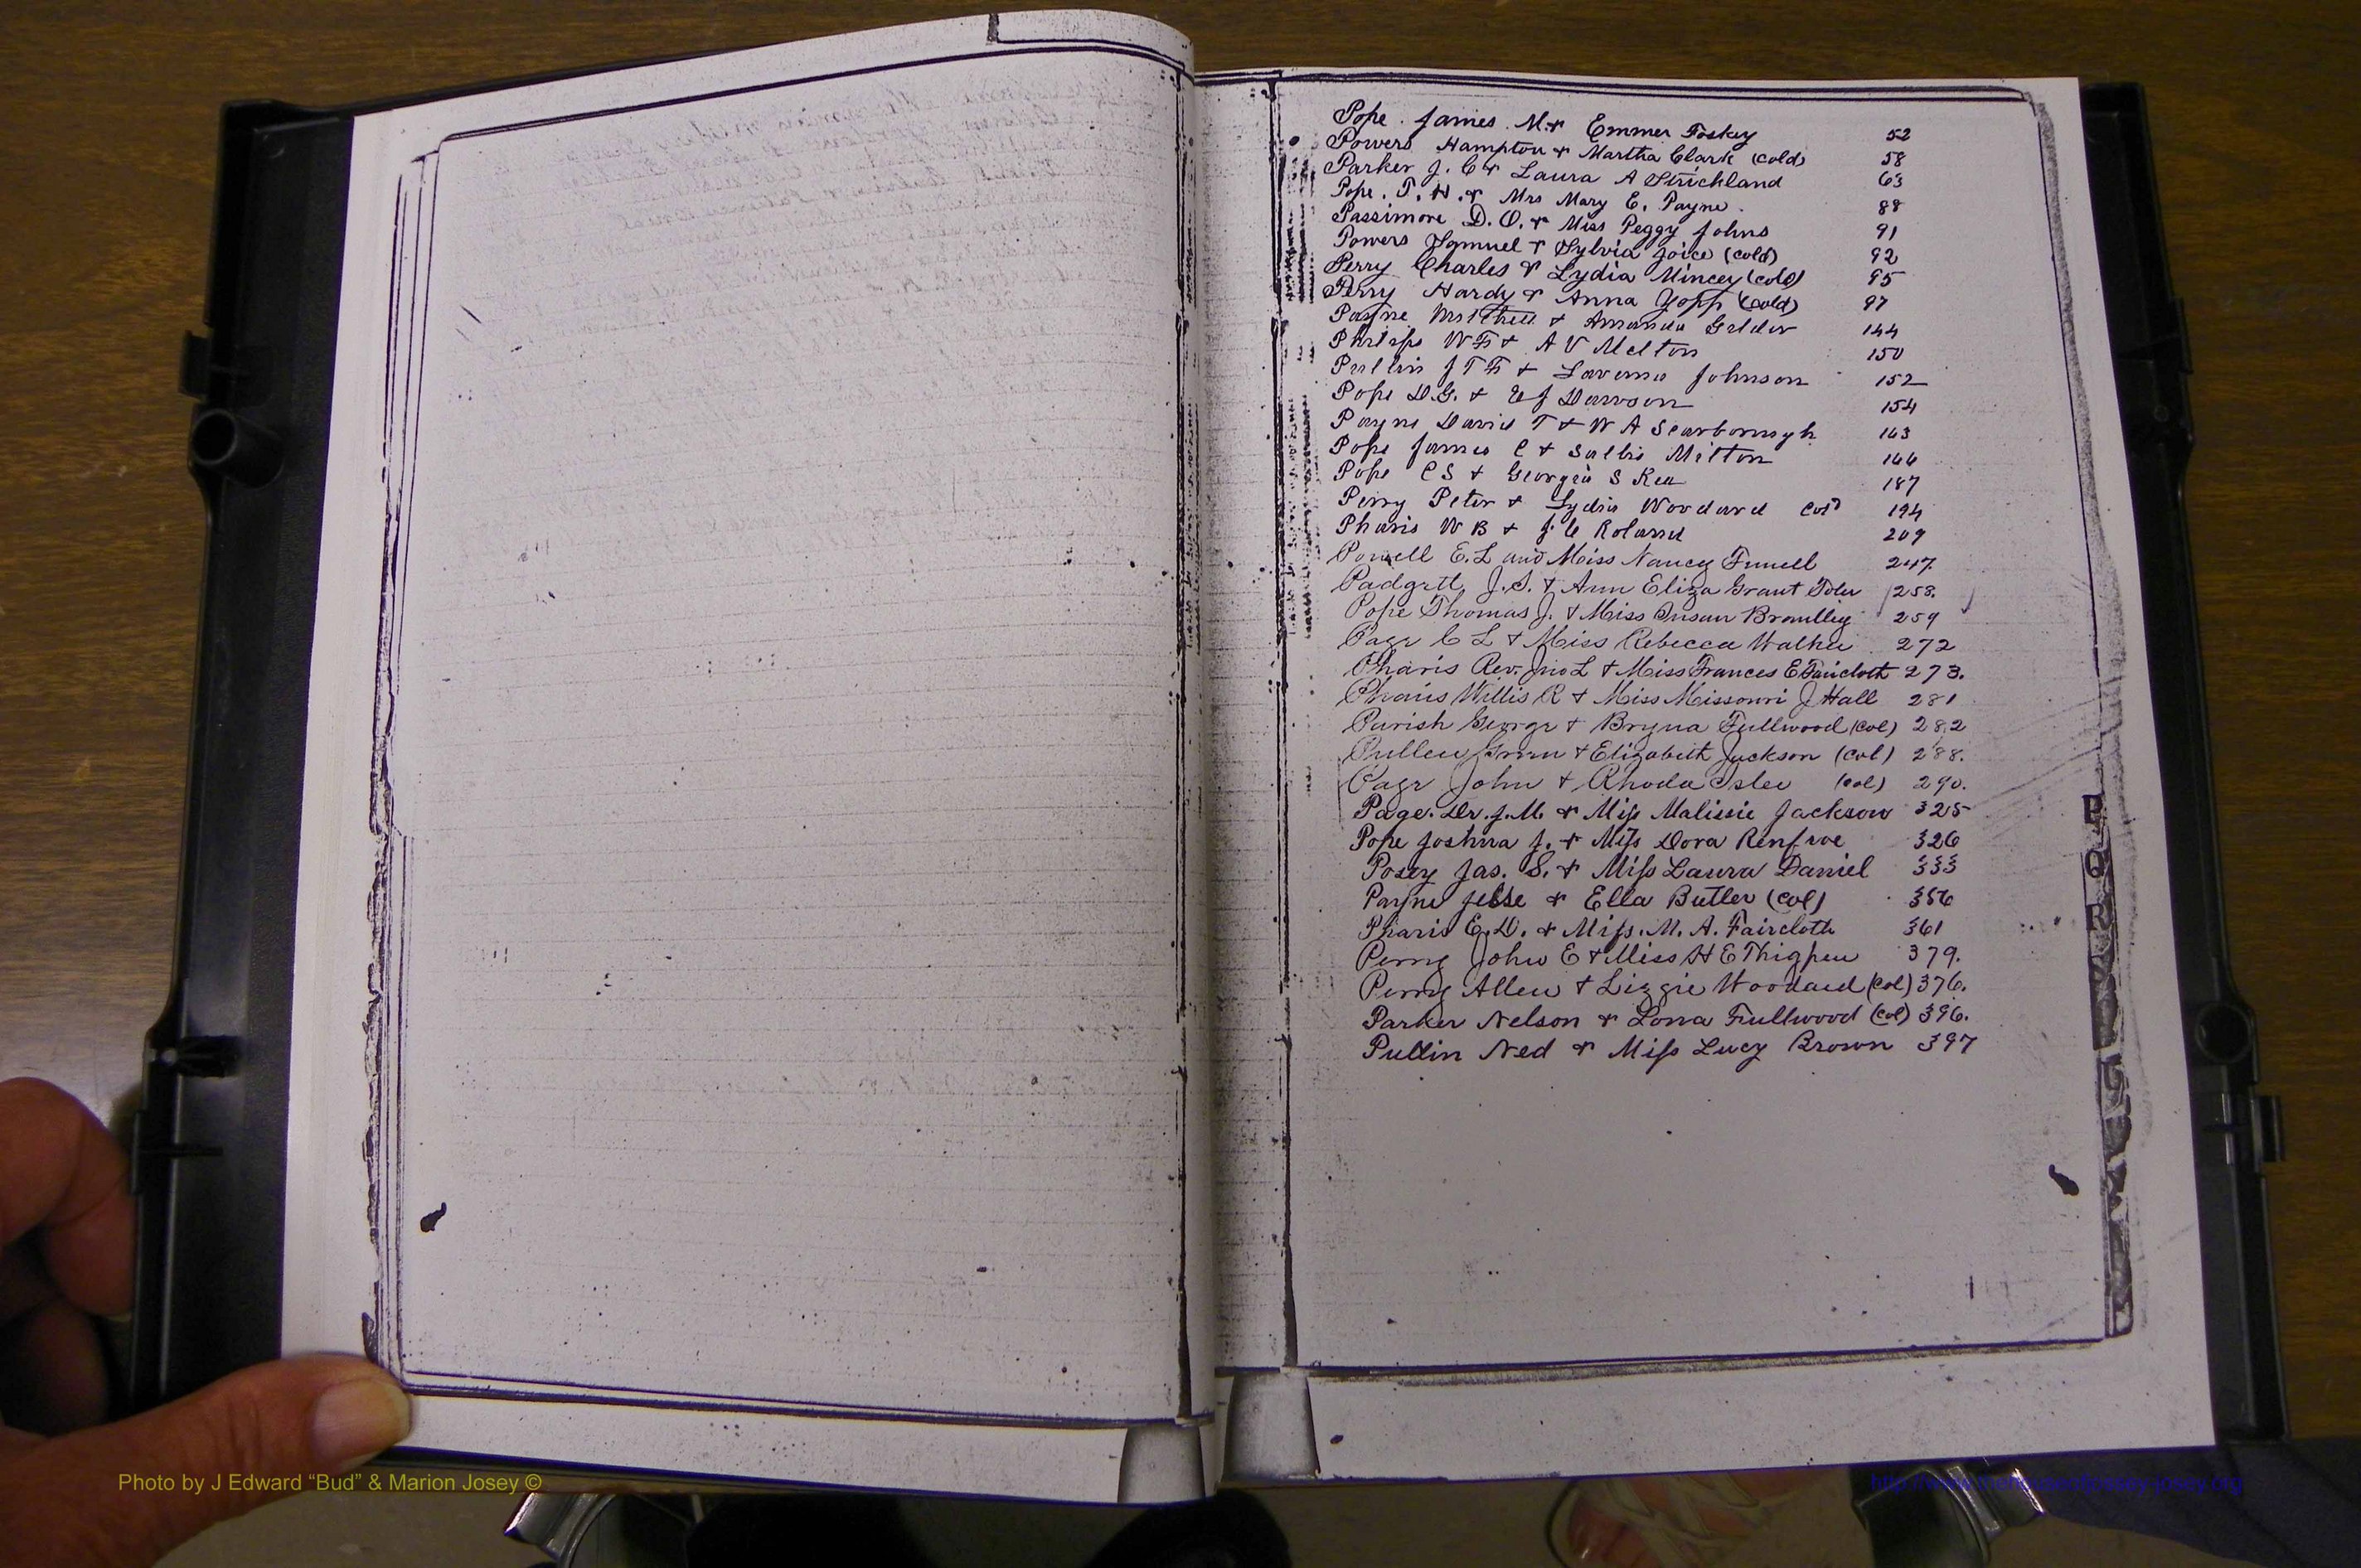 Pope. James. M. & Emmer Foskey 52
Powers Hampton & Martha Clark (cold) 58
Parker J. C & Laura A Strickland 63
Pope. T. H. & Mrs Mary E. Payne. 88
Passimore D. O. & Miss Peggy Johns 91
Powers Samuel & Sylvia Joice (cold) 92
Perry Charles & Lydia Mincey (cold) 95
Perry Hardy & Anna Yopp (cold) 97
Payne & Amanda 144
Philips W F & A V Melton 150
Pullin J T F & Johnson 152
Pope D.G. & E J Dawson 154
Payne David T & W A Scarborough 163
Pope James C & Sallie Milton 166
Pope C S & Georgia S Kea 187
Perry Peter & Lydia Woodard Col 194
Pharis W B & J. C Roland 209
Powell E. L and Miss Nancy 247.
Padgett J. S. & Ann Eliza Grant 258.
Pope Thomas J. & Miss Susan 259
Page C L & Miss Rebecca Walker 272
Pharis Rev. Jno L & Miss Frances E Faircloth 273.
Pharis Willis R & Miss Missouri J Hall 281
Parish George & Fullwood (Col) 282
Pullen & Elizabeth Jackson (Col) 288.
Page John & Rhoda (Col) 290.
Page. Dr. J. M. & Miss Malissie Jackson 325
Pope Joshua J. & Miss Dora Renfroe 326
Posey Jas. S. & Miss Laura Daniel 333
Payne Jesse & Ella Butler (Col) 356
Pharis E. D. & Miss. M. A. Faircloth 361
Perry John E & Miss H E Thigpen 379.
Perry Allen & Lizzie Woodard (Col) 376.
Parker Nelson & Lona Fullwood (Col) 396.
Pullin Ned & Miss Lucy Brown 397
P
Q
R
Photo by J Edward “Bud” & Marion Josey ©
http://www.thehouseofjossey-josey.org